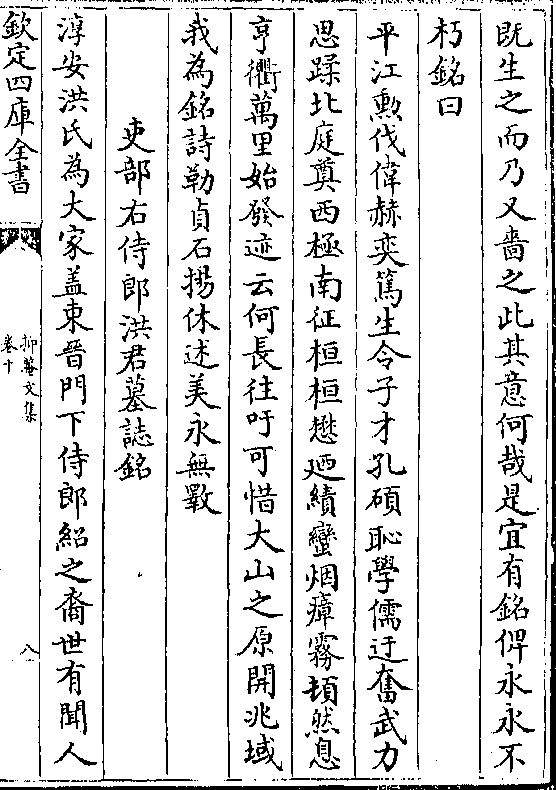 既生之而乃又嗇之此其意何哉是宜有銘俾永永不
朽銘曰
平江勲伐偉赫奕篤生令子才孔碩恥學儒迂奮武力
思蹂北庭奠西極南征桓桓懋廼績蠻烟瘴霧頓然息
亨衢萬里始發迹云何長往吁可惜大山之原開兆域
我為銘詩勒貞石揚休述美永無斁
吏部右侍郎洪君墓誌銘
淳安洪氏為大家盖東晉門下侍郎紹之裔世有聞人
欽定四庫全書
抑菴文集
卷十
八